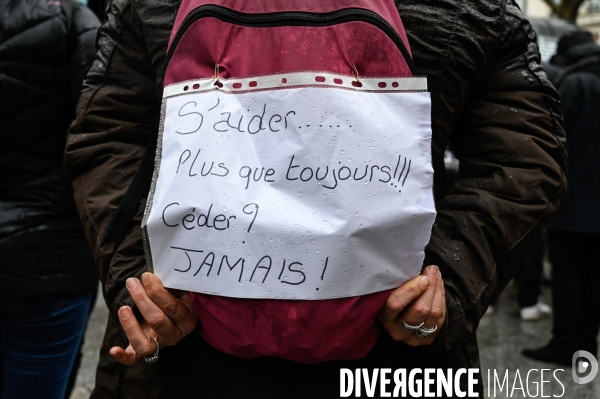 S'aider......
Plus que toujours!!!
Céder ?
JAMAIS !
DIVERGENCE IMAGES